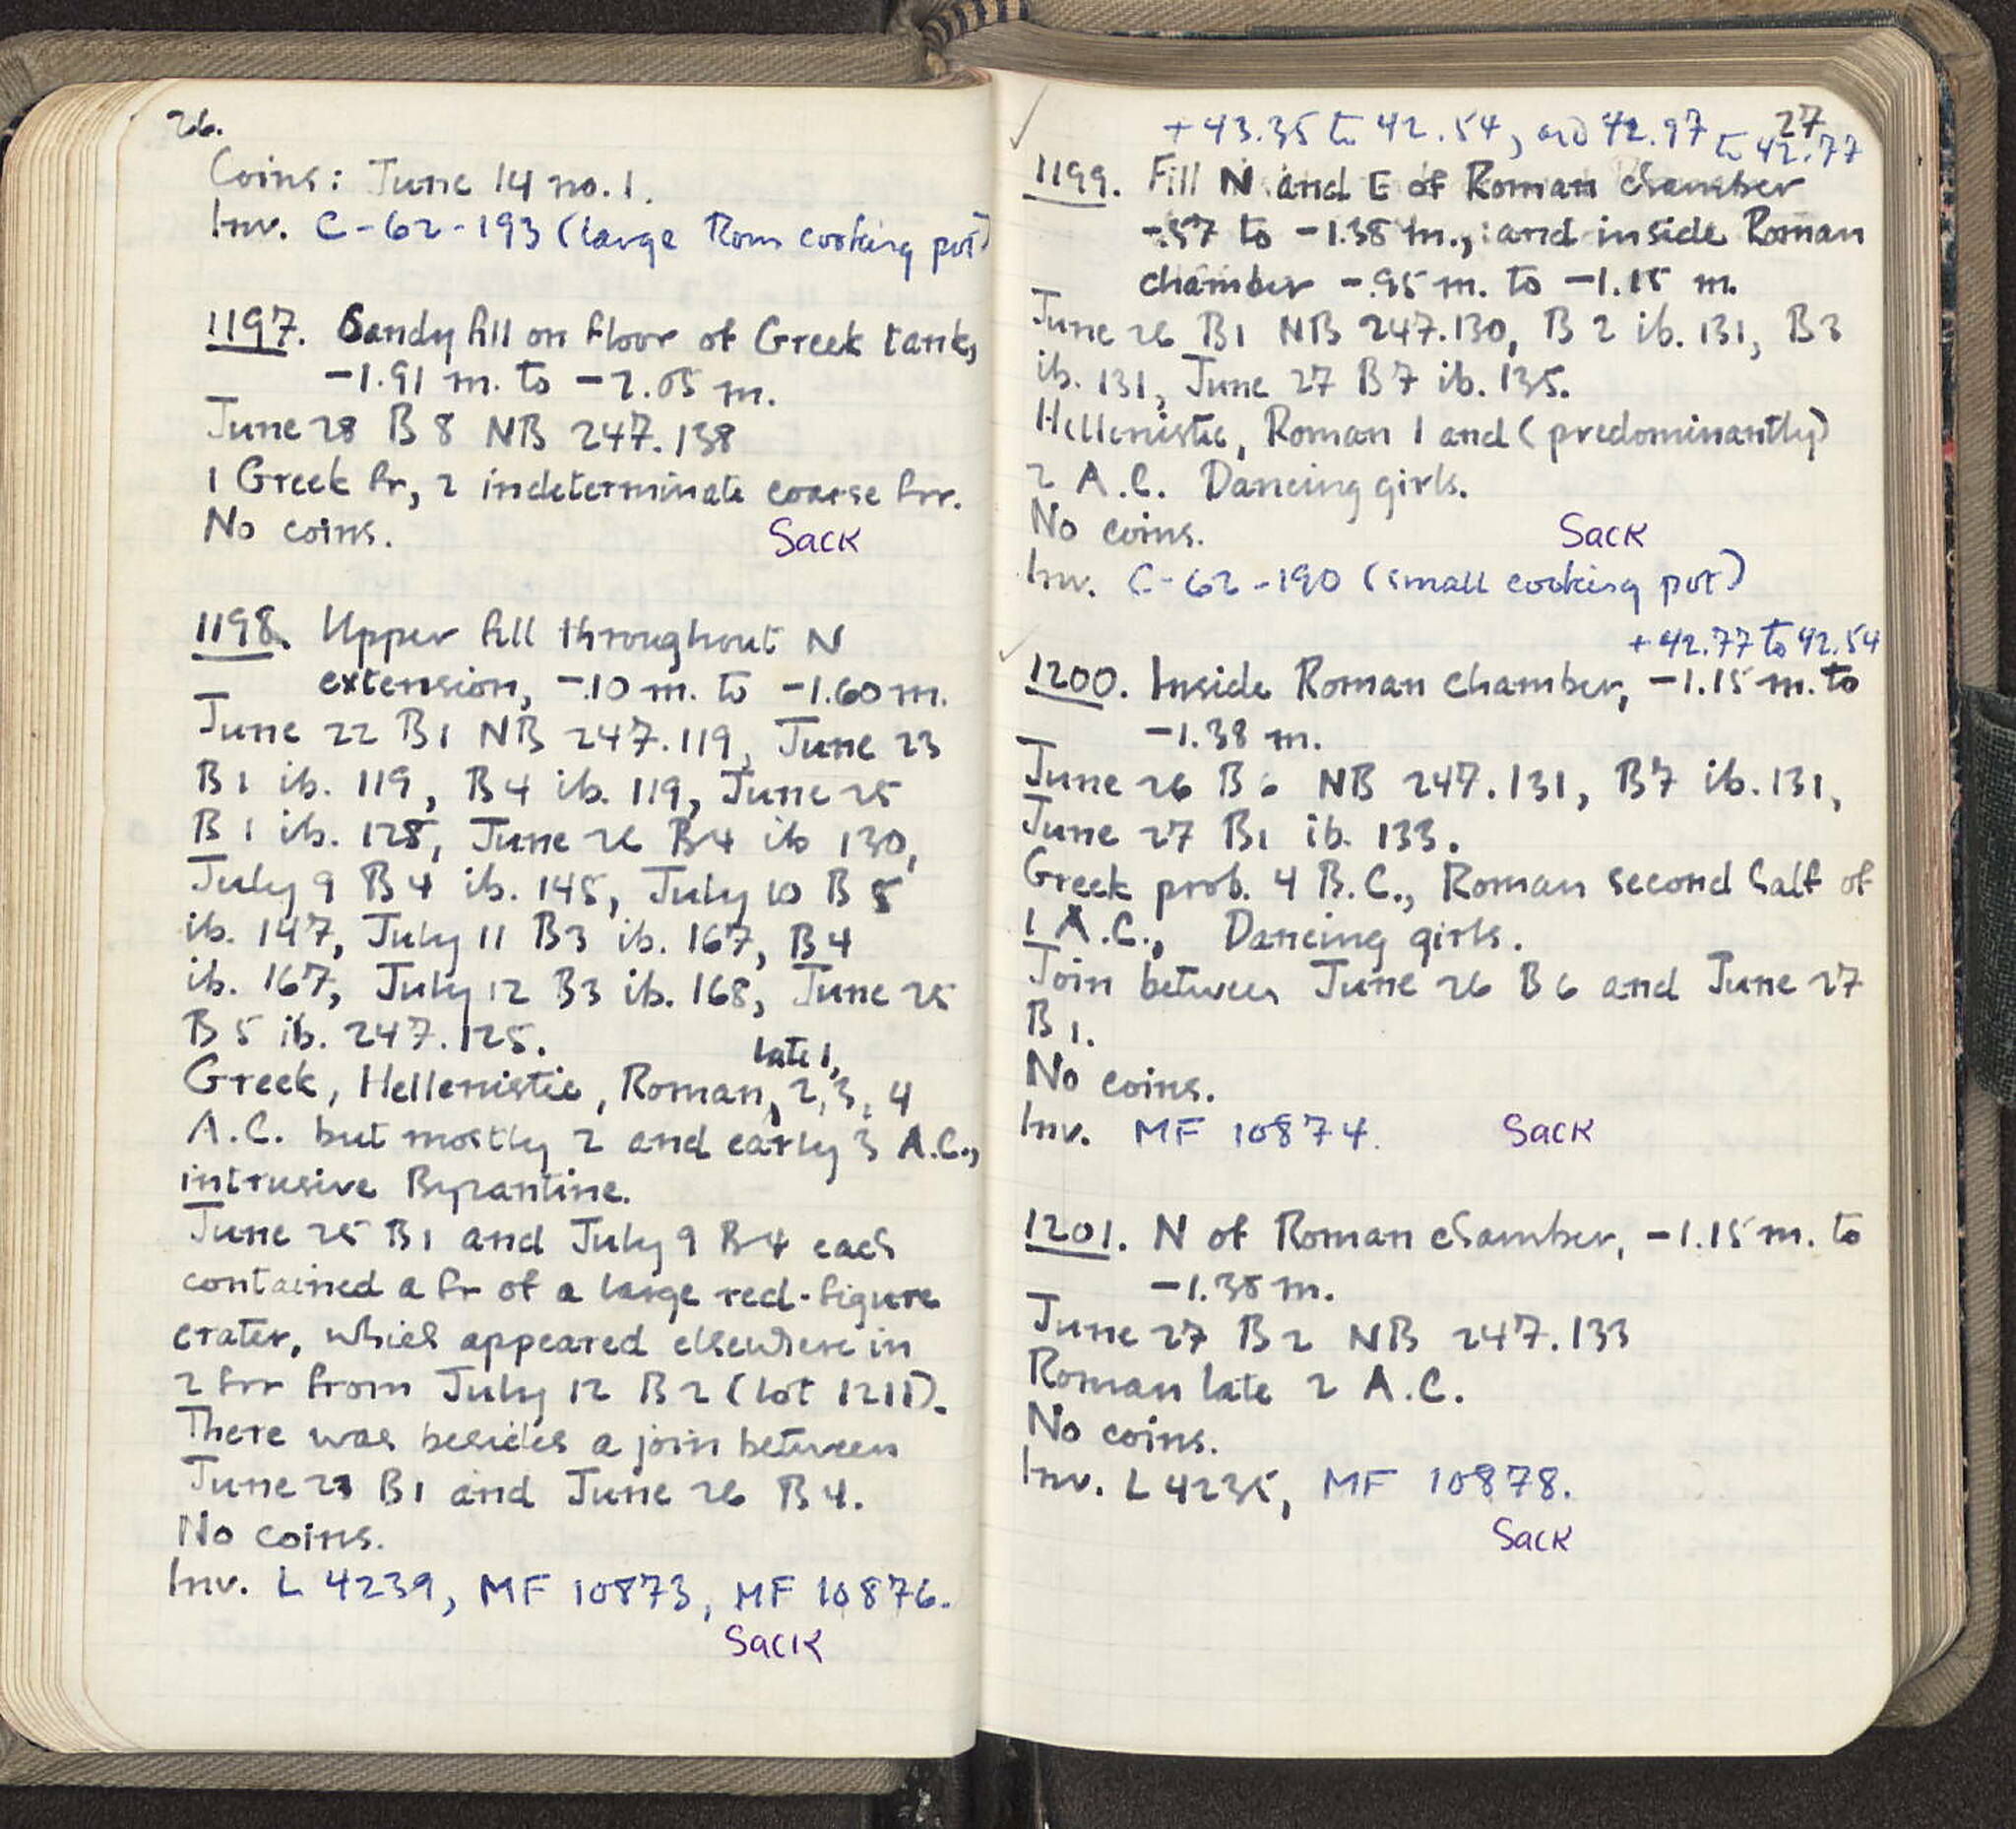 26.
Coins: June 14 no. 1.
Inv. C-62-193 (large Rom cooking pot)
1197. Sandy fill on floor of Greek tank,
-1.91 m. to -2.05 m.
June 28 B 8 NB 247.138
1 Greek fr, 2 indeterminate coarse frr.
No coins.
Sack
1198. Upper fill throughout N
extension, -.10 m. to -1.60 m.
June 22 B1 NB 247.119, June 23
B1 ib. 119, B4 ib. 119, June 25
B1 ib. 125, June 26 B4 ib 130,
July 9 B4 ib. 145, July 10 B5
ib. 147, July 11 B3 ib. 167, B4
ib. 167, July 12 B3 ib. 168, June 25
B5 ib. 247.125.
late 1,
Greek, Hellenistic, Roman, 2, 3, 4
A.C. but mostly 2 and early 3 A.C.,
intrusive Byzantine.
June 25 B1 and July 9 B4 each
contained a fr of a large red-figure
crater, which appeared elsewhere in
2 frr from July 12 B2 (lot 1211).
There was besides a join between
June 23 B1 and June 26 B4.
No coins.
Inv. L 4239, MF 10873, MF 10876.
Sack
27
+43.35 to 42.54, and 42.97 to 42.77
1199. Fill N and E of Roman chamber
-.57 to -1.38 m., and inside Roman
chamber -.95 m. to -1.15 m.
June 26 B1 NB 247.130, B2 ib. 131, B3
ib. 131, June 27 B7 ib. 135.
Hellenistic, Roman 1 and (predominantly)
2 A.C. Dancing girls.
No coins.
Sack
Inv. C-62-190 (small cooking pot)
+42.77 to 42.54
1200. Inside Roman chamber, -1.15 m. to
-1.38 m.
June 26 B6 NB 247.131, B7 ib. 131,
June 27 B1 ib. 133.
Greek prob. 4 B.C., Roman second half of
1 A.C., Dancing girls.
Join between June 26 B6 and June 27
B1.
No coins.
Inv. MF 10874. Sack
1201. N of Roman chamber, -1.15 m. to
-1.38 m.
June 27 B2 NB 247.133
Roman late 2 A.C.
No coins.
Inv. L 4235, MF 10878.
Sack